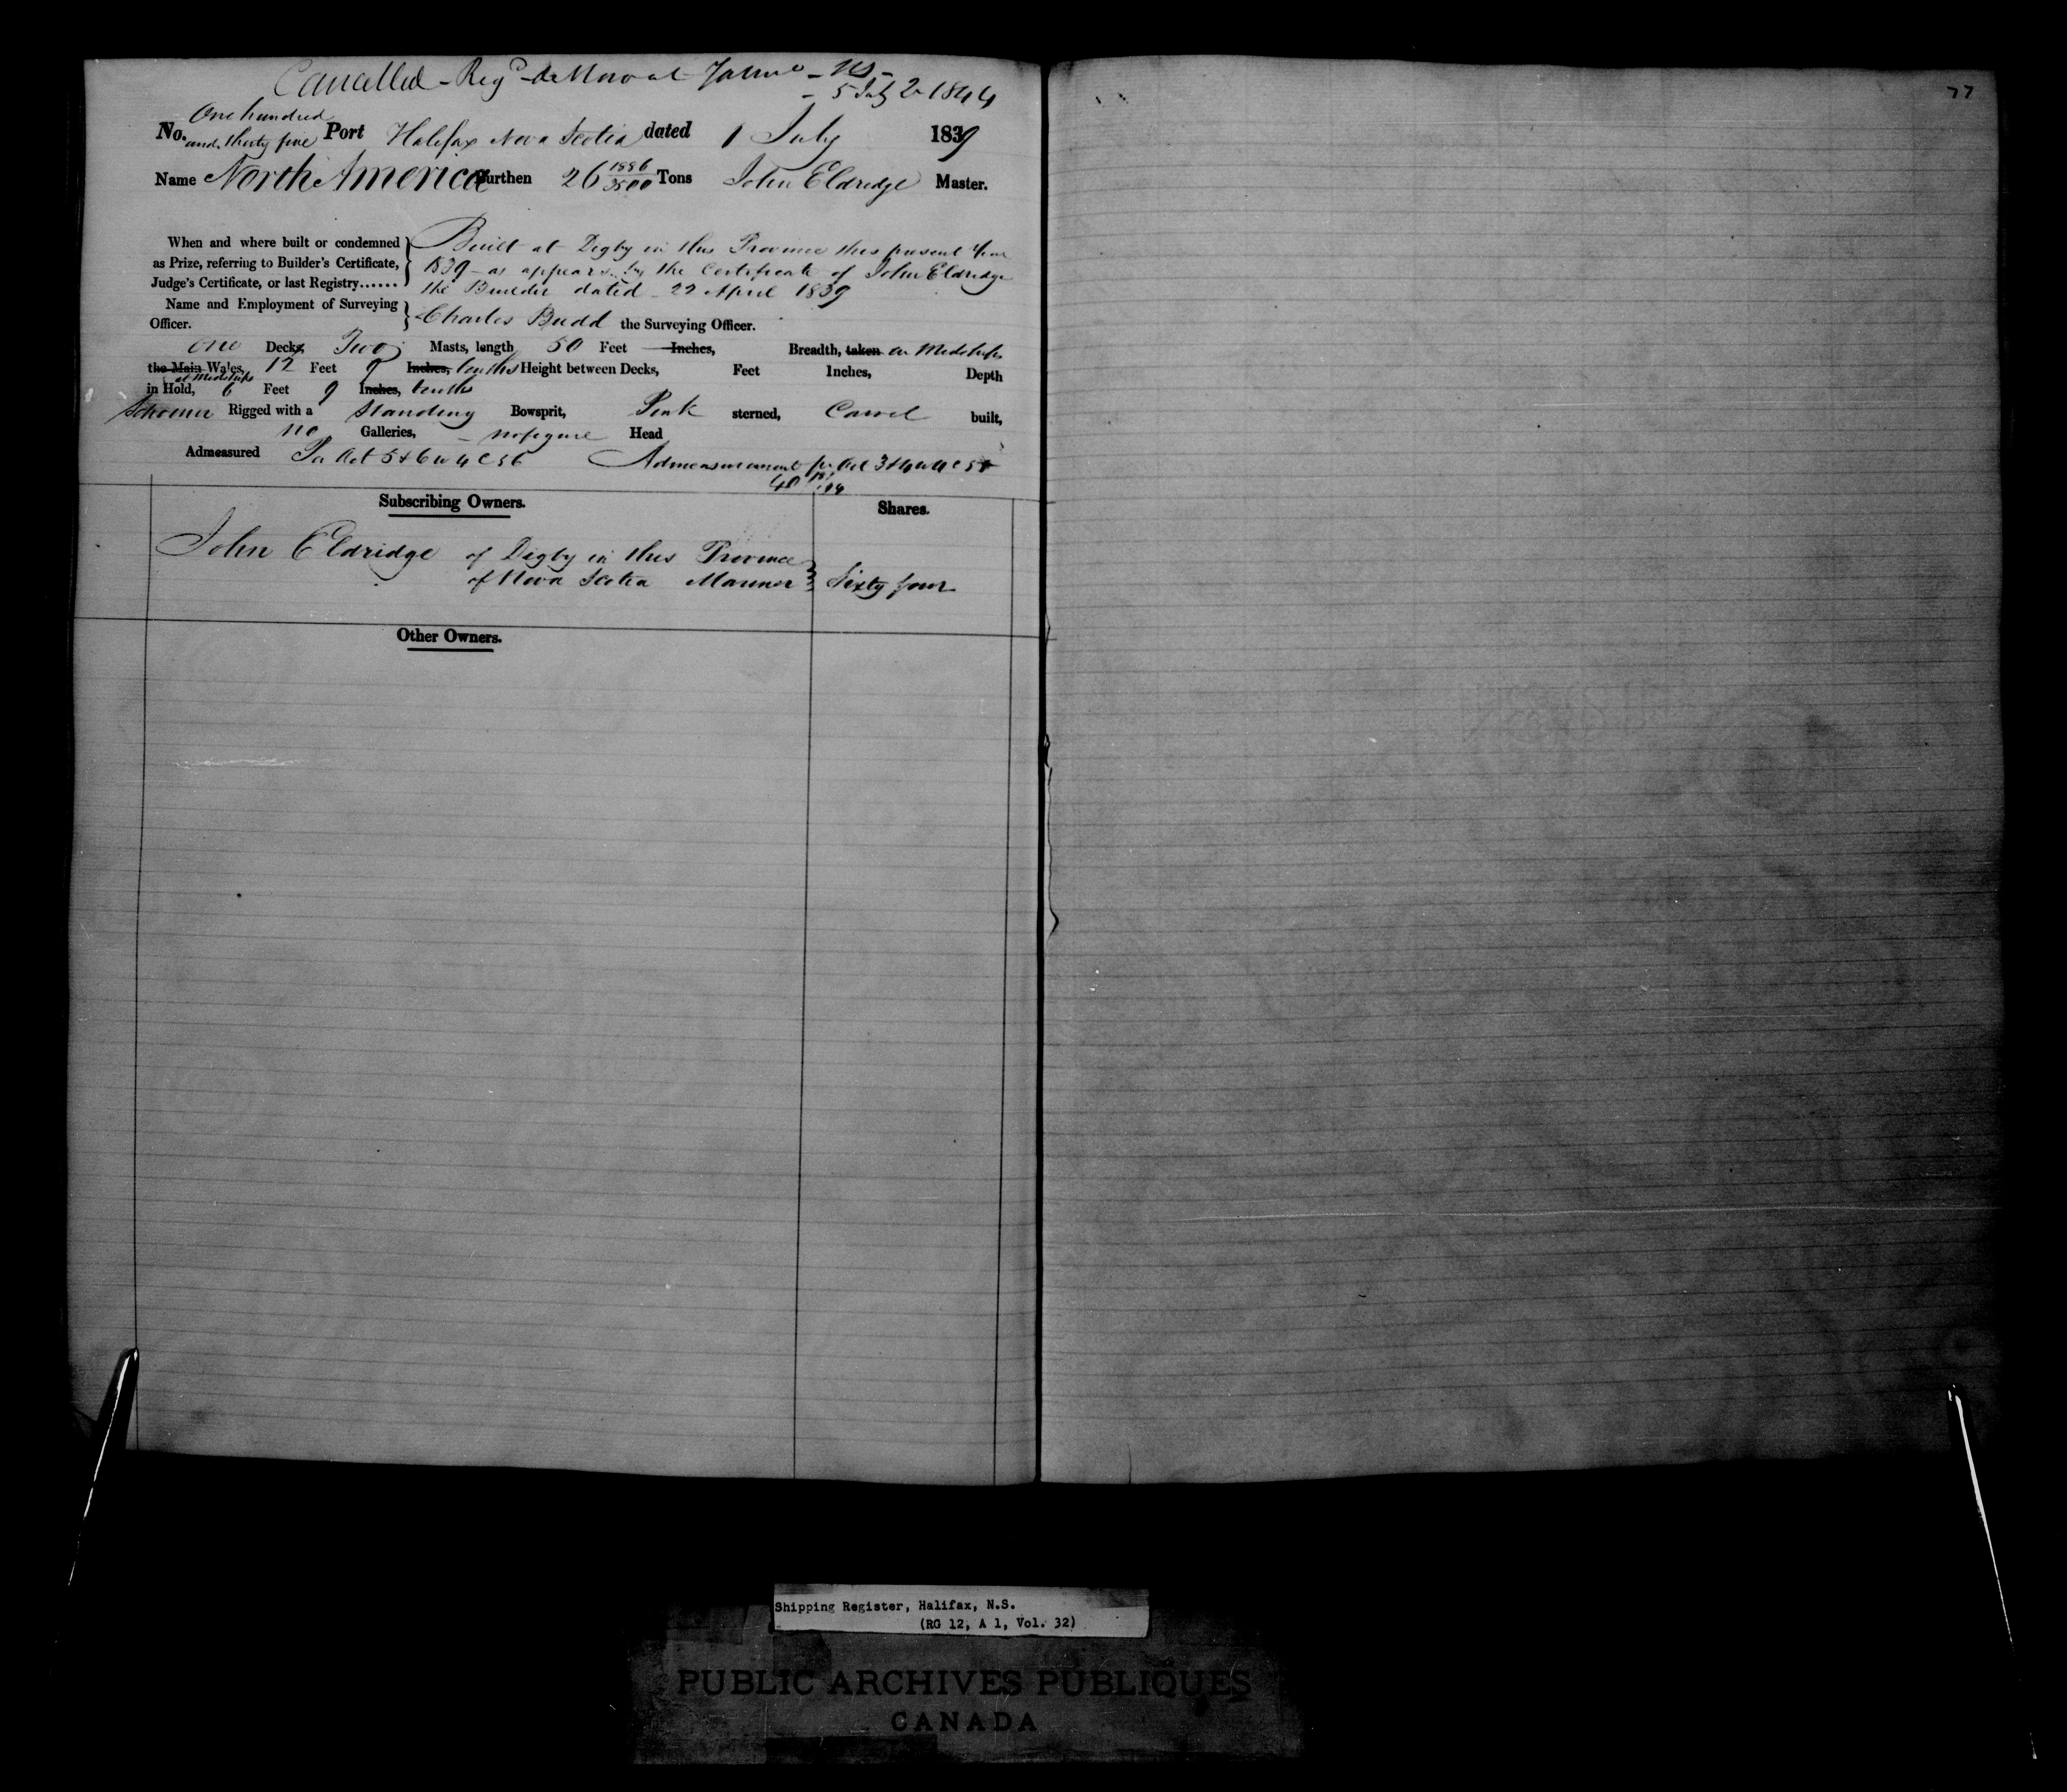 Cancelled - Reg^d de Novo at - N S -
- 5 July 1844
77
One hundred
No. and thirty five Port Halifax Nova Scotia dated 1 July 1839
Name North America Burthen 26 1886/3500 Tons John Eldredge Master.
When and where built or condemned
as Prize, referring to Builder's Certificate,
Judge's Certificate, or last Registry......
Built at Digby in this Province this present Year
1839 - as appears by the Certificate of John Eldredge
the Builder dated 22 April 1839
Name and Employment of Surveying
Officer.
Charles Budd the Surveying Officer.
One Decks Two Masts, length 50 Feet Inches, Breadth, taken on Midships
the Main Wales, 12 Feet 9 Inches, tenths Height between Decks, Feet Inches, Depth
at Midships
in Hold, 6 Feet 9 Inches, tenths
Schooner Rigged with a Standing Bowsprit, Pink sterned, Carvel built,
no Galleries, - no figure Head
Admeasured Per Act 5 & 6 W 4 C 56 Admeasurement pr Act 3 & 4 W 4 C 55
40
Subscribing Owners. Shares.
John Eldridge of Digby in this Province
of Nova Scotia Mariner Sixty four
Other Owners.
Shipping Register, Halifax, N.S.
(RG 12, A 1, Vol. 32)
PUBLIC ARCHIVES PUBLIQUES
CANADA